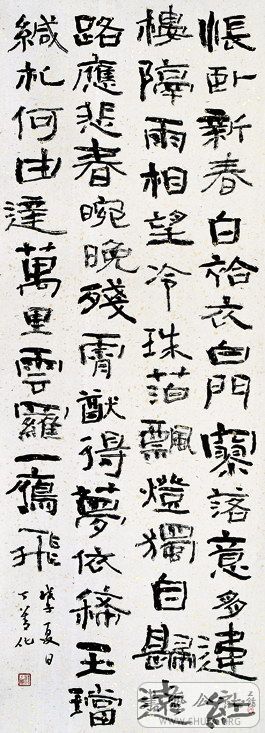 悵卧新春白袷衣白門寥落意多違紅
樓隔雨相望冷珠箔飄燈獨自歸遠
路應悲春晼晚殘宵猷得夢依稀玉璫
緘札何由達萬里雲羅一鴈飛
夏日